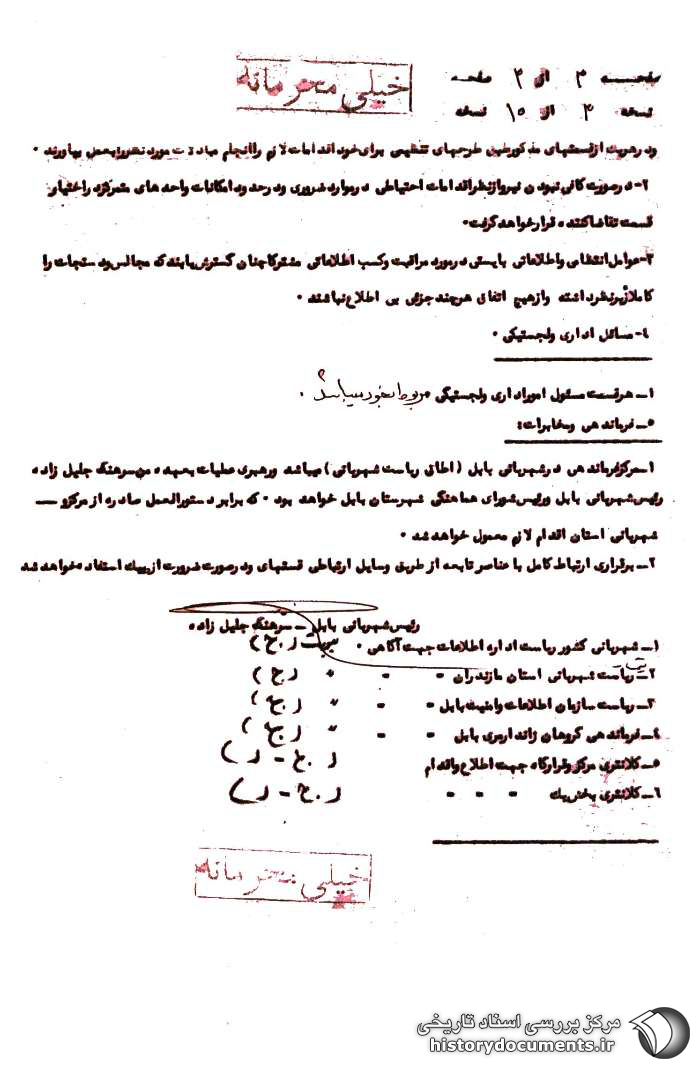 خیلی محرمانه
صفحه ۳ از ۴ صفحه
نسخه ۳ از ۱۵ نسخه
ودرهریک ازقسمتهای مذکورطبق طرحهای تنظیمی برای خوداقدامات لازم راانجام مورد نظررابعمل بیاورند ۰
۲- درصورت کافی نبودن نیرواز نظراقدامات احتیاطی درموارد ضروری ودرحدود امکانات واحدهای متمرکزدراختیار
قسمت تقاضاکننده قرارخواهدگرفت۰
۳-عوامل انتظامی واطلاعاتی بایستی درمورد مراقبت وکسب اطلاعاتی مشترکاچنان گسترش یابندکه مجالس ودستجات را
کاملازیرنظرداشته وازهیچ اتفاق هرچندجزئی بی اطلاع نباشند ۰
٤- مسائل اداری ولجستیکی ۰
۱- هرقسمت مسئول اموراداری ولجستیکی مربوط بخود میباشد ۰
۵- فرماندهی ومخابرات:
۱-مرکزفرماندهی درشهربانی بابل (اطاق ریاست شهربانی) میباشد ورهبری عملیات بعهده من سرهنگ جلیل زاده
رئیس شهربانی بابل ورئیس شورای هماهنگی شهرستان بابل خواهد بود ۰ که برابر دستورالعمل صادره از مرکزو —
شهربانی استان اقدام لازم معمول خواهدشد ۰
۲- برقراری ارتباط کامل با عناصر تابعه از طریق وسایل ارتباطی قسمتهای ودرصورت ضرورت ازپیک استفاده خواهدشد
رئیس شهربانی بابل - سرهنگ جلیل زاده
۱- شهربانی کشور ریاست اداره اطلاعات جهت آگاهی ۰ (ج)
۲- ریاست شهربانی استان مازندران - - " (ج)
۳- ریاست سازمان اطلاعات وامنیت بابل - - " (ج)
٤- فرماندهی گروهان ژاندارمری بابل - - " (ج)
۵- کلانتری مرکز وقرارگاه جهت اطلاع واقدام
٦- کلانتری بخش یک - - -
خیلی محرمانه
مرکز بررسی اسناد تاریخی
historydocuments.ir